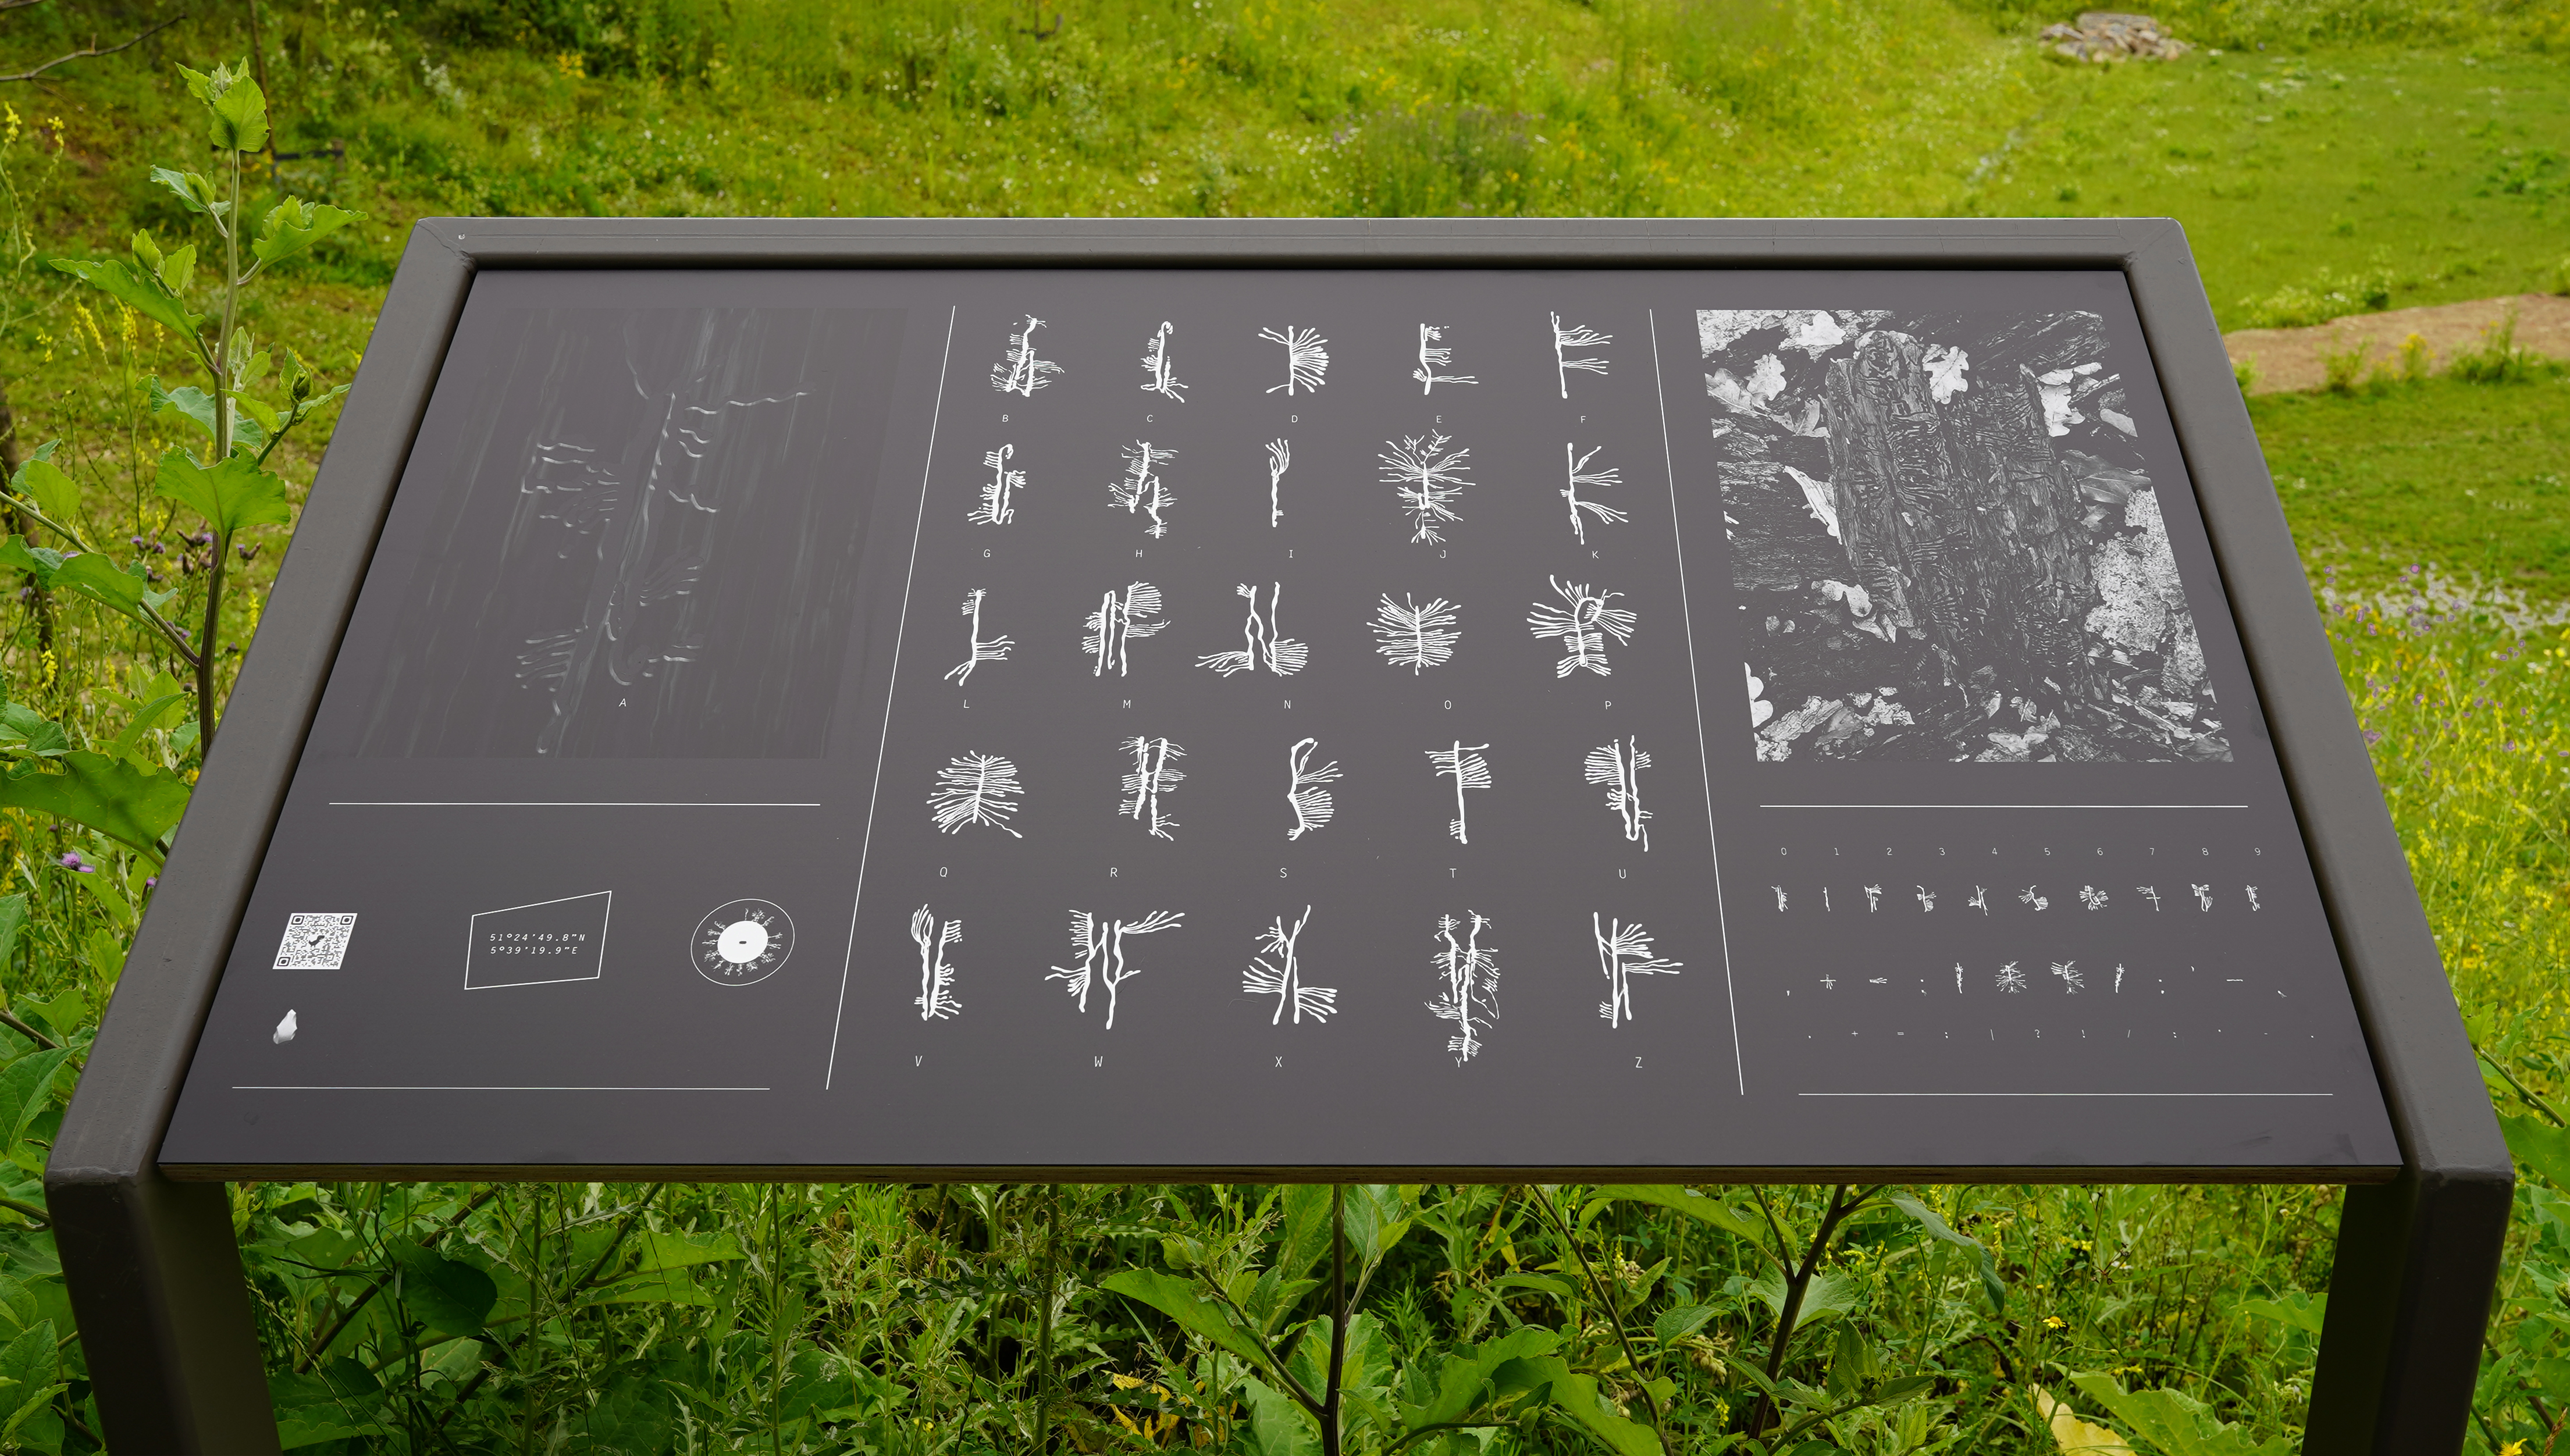 A
51°24'49.8"N
5°39'19.9"E
B C D E F
G H I J K
L M N O P
Q R S T U
V W X Y Z
0 1 2 3 4 5 6 7 8 9
. + = ; | ? ! / : ' - .